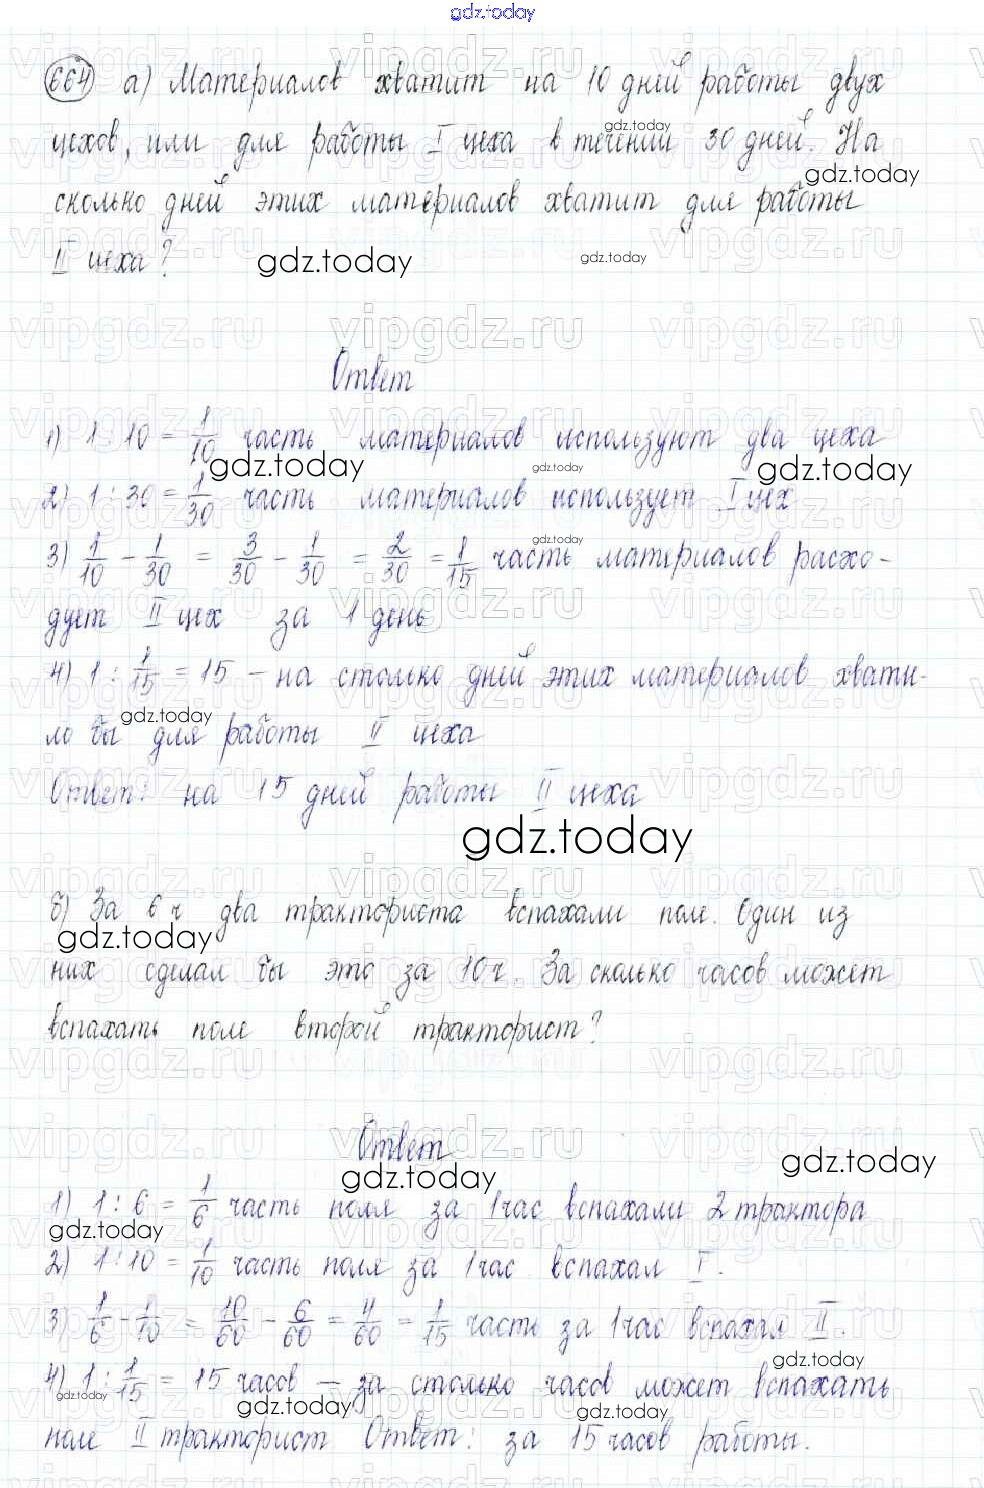 gdz.today
664 а) Материалов хватит на 10 дней работы двух
цехов, или для работы I цеха в течении 30 дней. На
сколько дней этих материалов хватит для работы
II цеха?
Ответ
1) 1 : 10 = 1/10 часть материалов используют два цеха
2) 1 : 30 = 1/30 часть материалов использует I цех
3) 1/10 - 1/30 = 3/30 - 1/30 = 2/30 = 1/15 часть материалов расхо-
дует II цех за 1 день
4) 1 : 1/15 = 15 - на столько дней этих материалов хвати-
ло бы для работы II цеха
Ответ: на 15 дней работы II цеха
б) За 6 ч два тракториста вспахали поле. Один из
них сделал бы это за 10 ч. За сколько часов может
вспахать поле второй тракторист?
Ответ
1) 1 : 6 = 1/6 часть поля за 1 час вспахали 2 трактора
2) 1 : 10 = 1/10 часть поля за 1 час вспахал I.
3) 1/6 - 1/10 = 10/60 - 6/60 = 4/60 = 1/15 часть за 1 час вспахал II.
4) 1 : 1/15 = 15 часов - за столько часов может вспахать
поле II тракторист Ответ: за 15 часов работы.